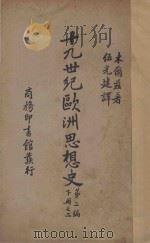 木爾茲著
伍光建譯
十九世紀歐洲思想史
第二編
下冊之二
商務印書館發行